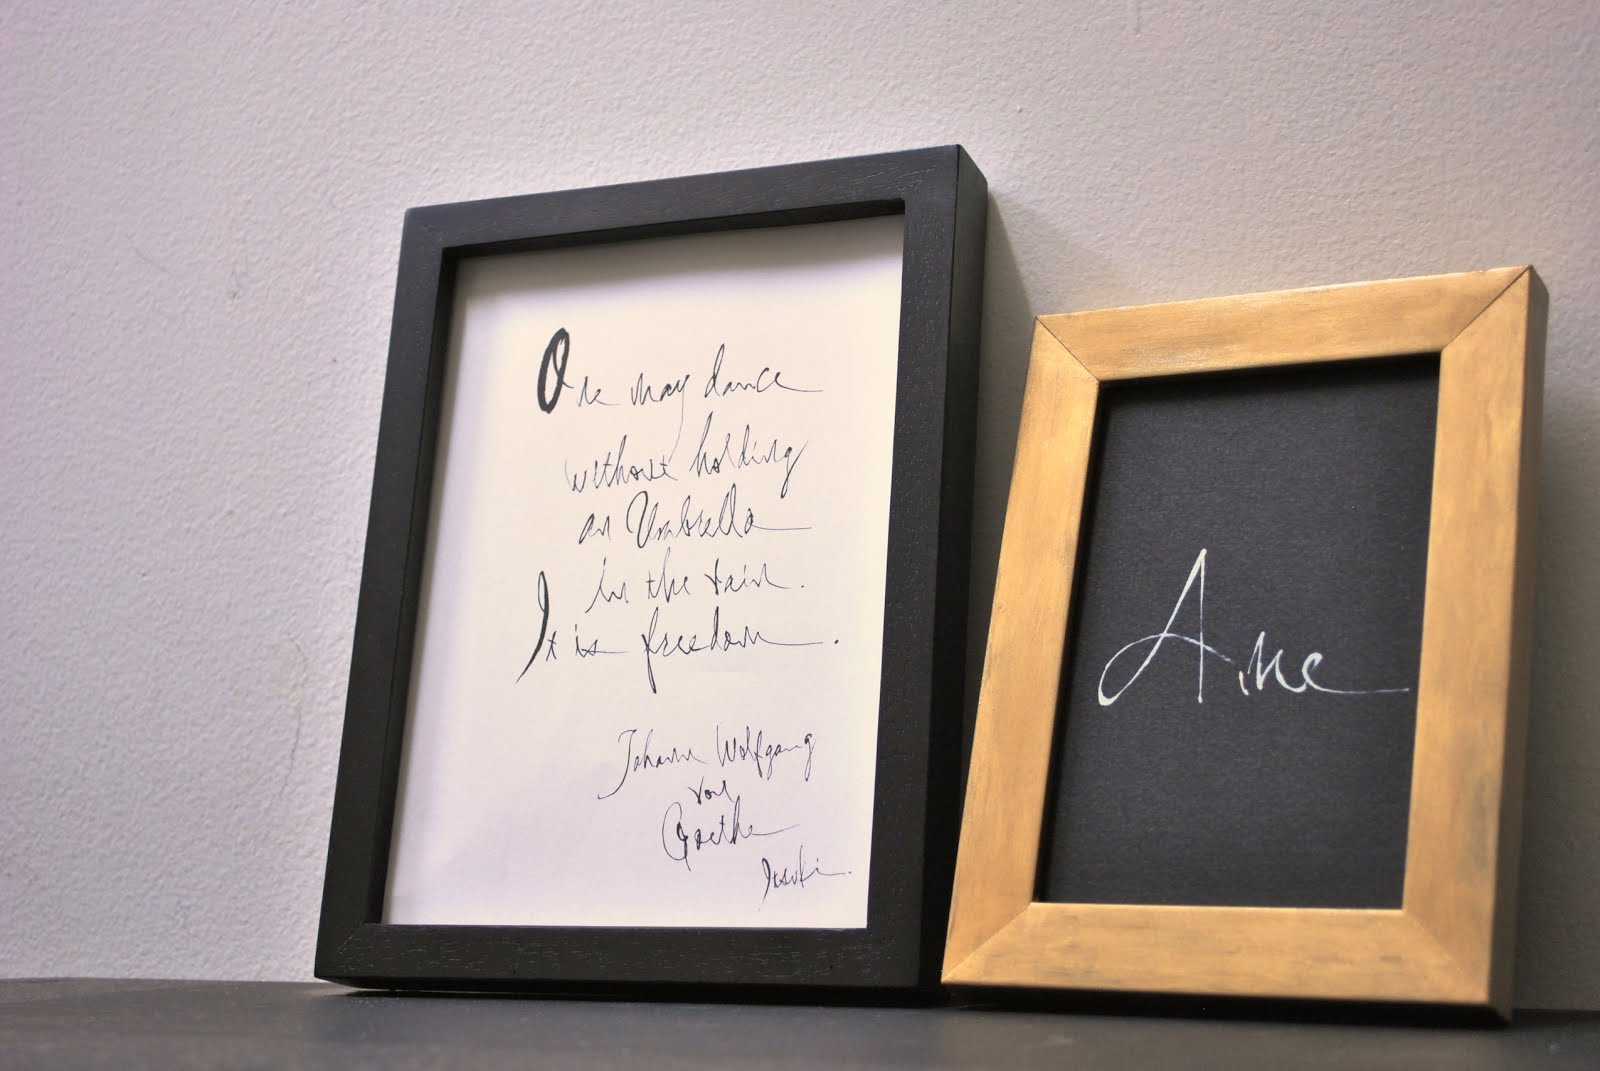 One may dance
without holding
an Umbrella
in the rain.
It is freedom.
Johann Wolfgang
von
Goethe
Itsuki.
Aine